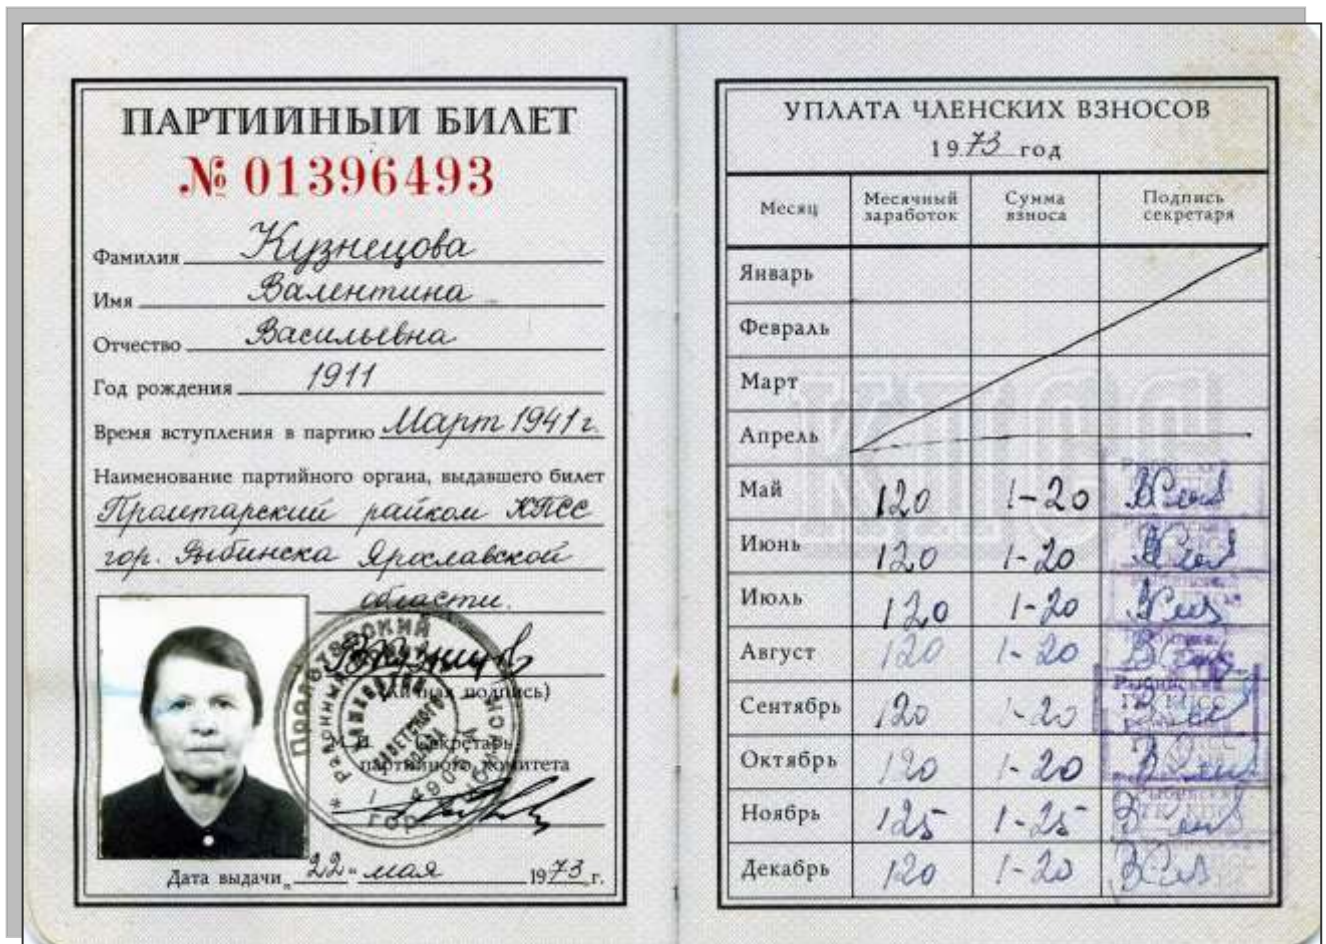 ПАРТИЙНЫЙ БИЛЕТ
№ 01396493
Фамилия Кузнецова
Имя Валентина
Отчество Васильевна
Год рождения 1911
Время вступления в партию Март 1941 г.
Наименование партийного органа, выдавшего билет
Пролетарский райком КПСС
гор. Рыбинска Ярославской
области.
(Личная подпись)
М. П. Секретарь
партийного комитета
Дата выдачи „22" мая 1973 г.
УПЛАТА ЧЛЕНСКИХ ВЗНОСОВ
1973 год
Месяц Месячный заработок Сумма взноса Подпись секретаря
Январь
Февраль
Март
Апрель
Май 120 1-20
Июнь 120 1-20
Июль 120 1-20
Август 120 1-20
Сентябрь 120 1-20
Октябрь 120 1-20
Ноябрь 125 1-25
Декабрь 120 1-20
КПСС